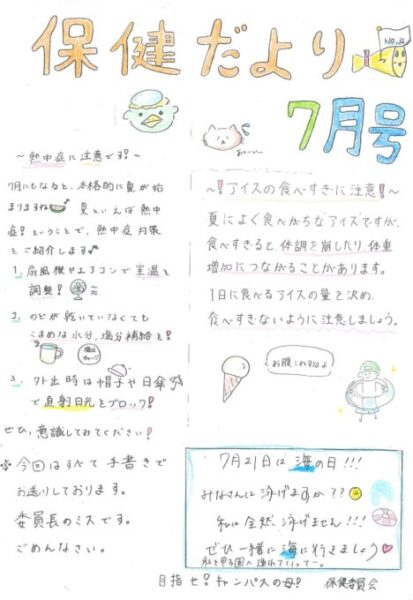 保健だより
NO.2
7月号
～熱中症に注意です!～
7月にもなると、本格的に夏が始
まりますね
夏といえば熱中
症!ということで、熱中症対策
をご紹介します♪
1. 扇風機やエアコンで室温を
調整!
2. のどが乾いていなくても
こまめな水分、塩分補給を!
3. 外出時は帽子や日傘
で直射日光をブロック!
ぜひ、意識してみてください!
※今回はすべて手書きで
お送りしております。
委員長のミスです。
ごめんなさい。
～!アイスの食べすぎに注意!～
夏によく食べがちな"アイス"ですが、
食べすぎると、体調を崩したり、体重
増加につながることがあります。
1日に食べるアイスの量を決め、
食べすぎないように注意しましょう。
お腹こわすなよ
7月21日は海の日!!!
みなさんは泳げますか??
私は全然泳げません!!!
ぜひ一緒に海に行きましょう♡
私を甲子園へ連れていって〜
目指せ!キャンパスの母!
保健委員会